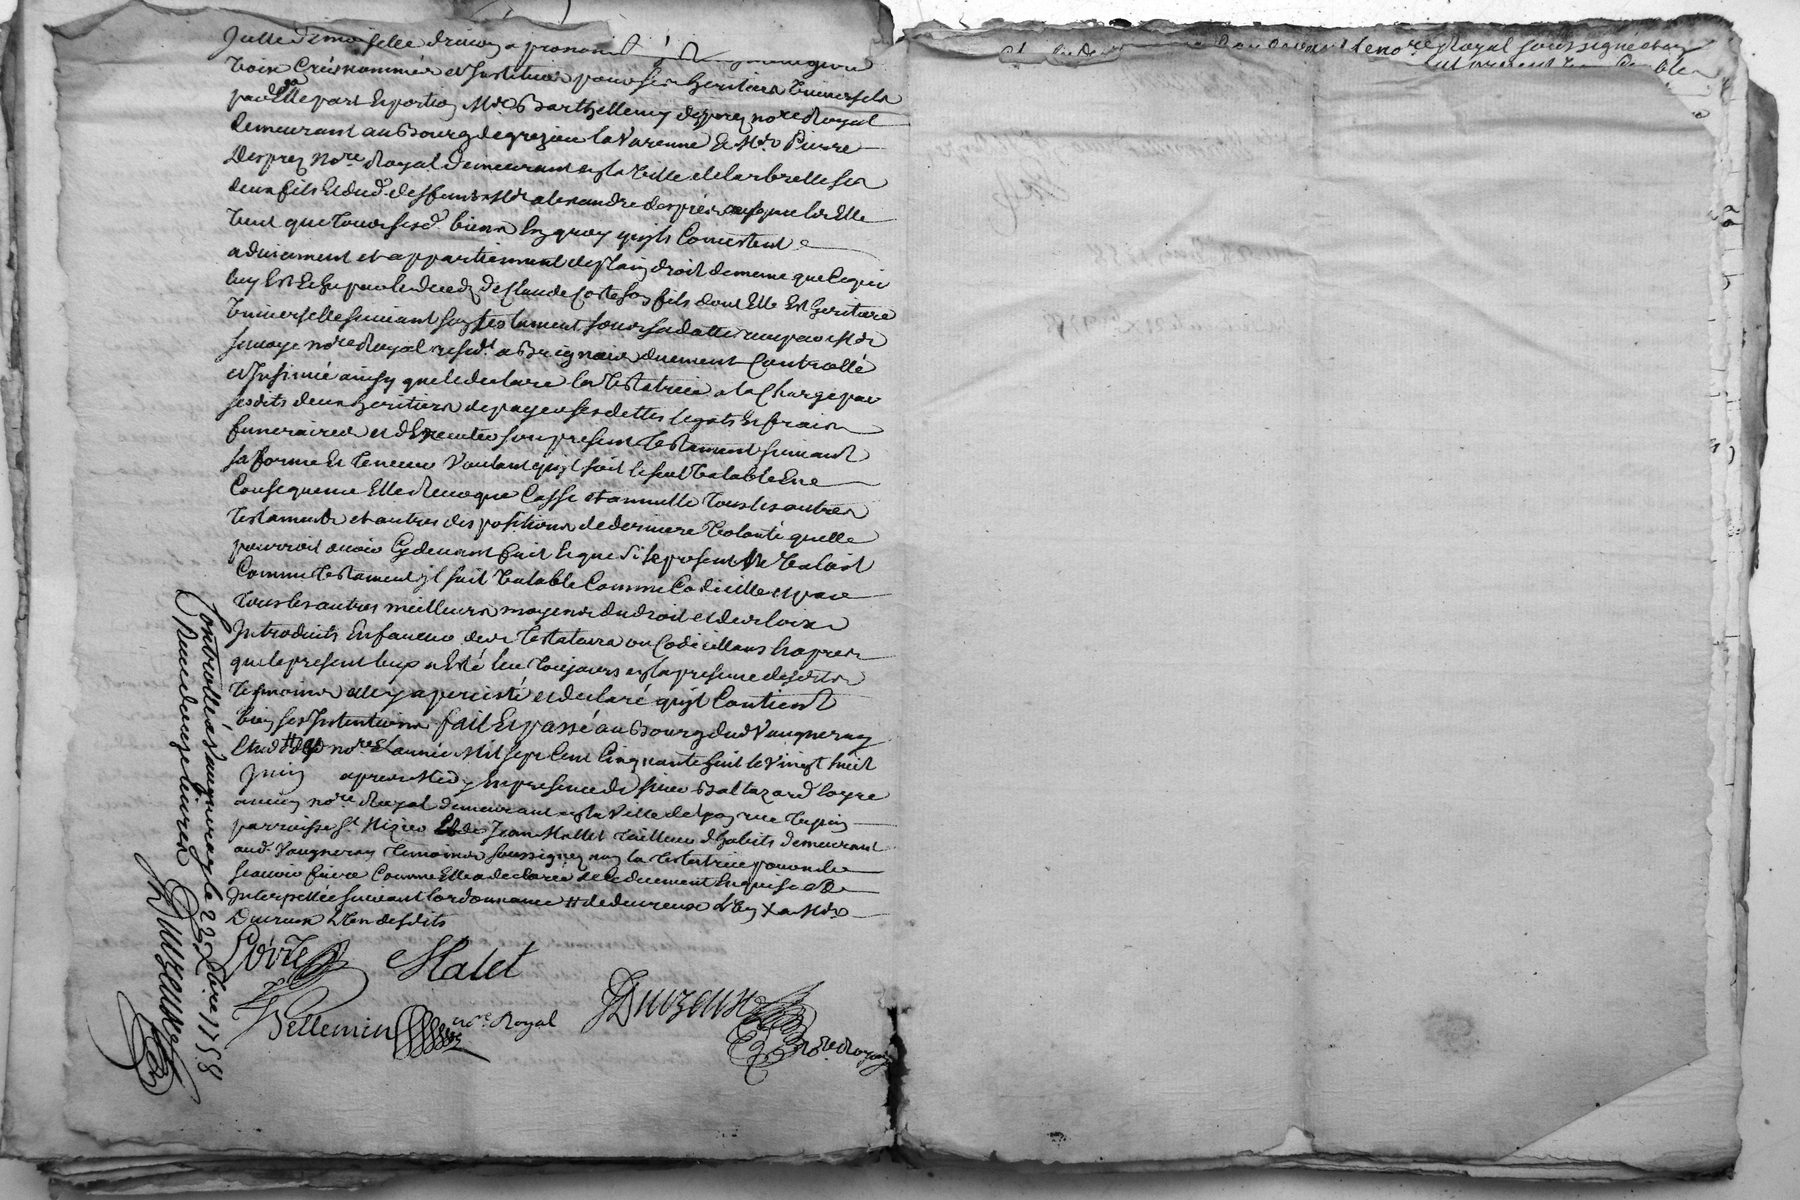 voix créé nommé et Institué pour ses heritiers Universels
par Elle part Et portion Mre Barthellemy desprez nore Royal
demeurant au Bourg de grezieu la Varenne Et Mre Pierre
Desprez nore Royal demeurant en la Ville de larbresle ses
deux fils Et dud. deffunt Mre alexandre desprez auxquels Elle
Veut que tous sesd. biens En quoy qu'ils Consistent
adviennent et appartiennent de plain droit de meme que ce qui
luy Est Echu par le deceds de Claude Coste son fils dont Elle Est heritiere
Universelle suivant son testament sous sa datte reçu par Mre
nore Royal resid.t a Brignais duement Controllé
et Insinué ainsy que le declare la Testatrice a la Charge par
sesdits deux heritiers de payer ses dettes legats Et fraix
funeraires et d'Executer son present Testament suivant
sa forme Et teneur Voulant qu'il soit le seul Valable En
Consequence Elle Revoque Casse et annulle tous les autres
testaments et autres dispositions de derniere Volonté quelle
pourroit avoir Cydevant fait Et que Si le present ne Valoit
Comme testament il soit Valable Comme Codicille et par
tous les autres meilleurs moyens du droit et des loix
Introduits En faveur des Testateurs ou Codicillans Et apres
que le present luy a Eté leu toujours en la presence desdits
temoins elle y a percisté et declaré qu'il Contient
bien ses Intentions fait Et passé au Bourg dud Vaugneray
nores L'année Mil sept Cent Cinquante huit le Vingt huit
Juin apres Midy En presence de sieur Baltazard
ancien nore Royal demeurant en la Ville de Lyon rue Tupin
parroisse St Nizier Et de Jean Mallet tailleur d'habits demeurant
aud. Vaugneray temoins soussignez non la testatrice pour ne le
scavoir faire Comme Elle a declaré de Ce duement Enquise Et
Interpellée suivant l'ordonnance
Duzeux L'un desdits
Malet
Vellemin nore Royal
Duzeux nore Royal
Controllé a Vaugneray le 22 1758
Reçu douze livres
Duzeux
le nore Royal soussigné